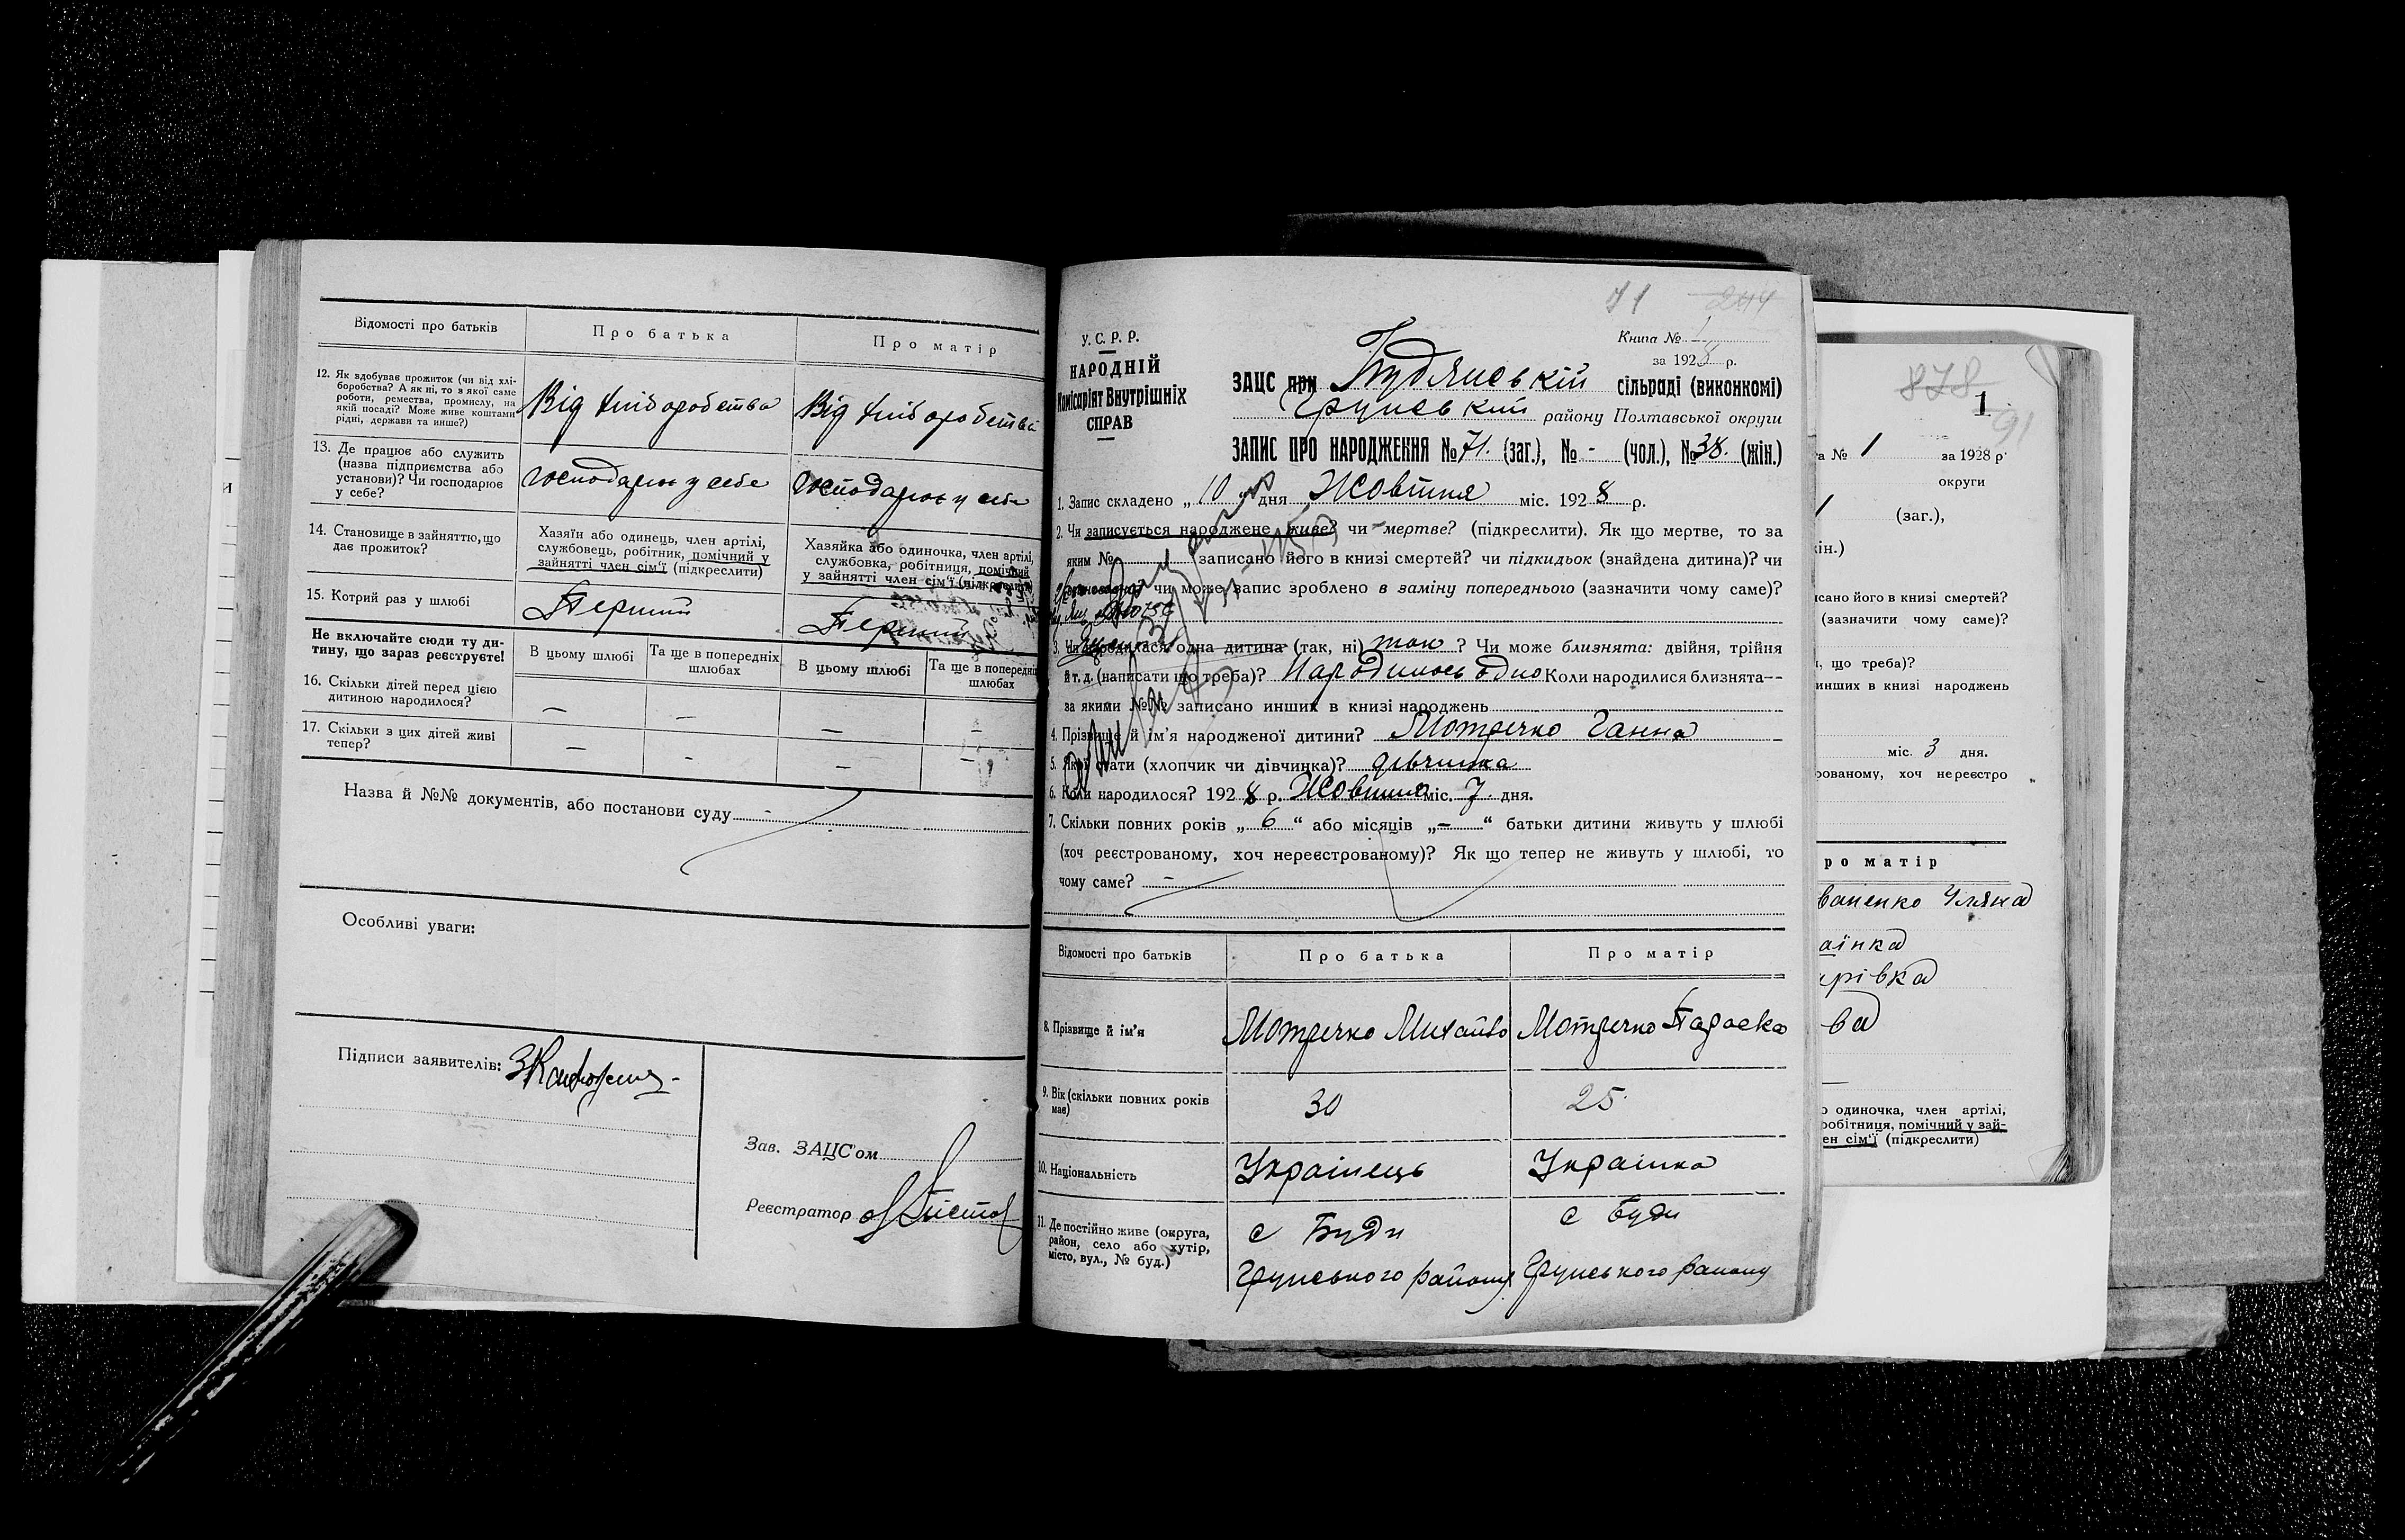 Відомості про батьків
Про батька
Про матір
12. Як здобуває прожиток (чи від хлі-
боробства? А як ні, то з якої саме
роботи, ремества, промислу, на
якій посаді? Може живе коштами
рідні, держави та инше?)
Від хліборобства
Від хліборобства
13. Де працює або служить
(назва підприємства або
установи)? Чи господарює
у себе?
господарює у себе
господарює у себе
14. Становище в зайняттю, що
дає прожиток?
Хазяїн або одинець, член артілі,
службовець, робітник, помічний у
зайнятті член сім'ї (підкреслити)
Хазяйка або одиночка, член артілі,
службовка, робітниця, помічний
у зайнятті член сім'ї (підкреслити)
15. Котрий раз у шлюбі
Перший
Перший
Не включайте сюди ту ди-
тину, що зараз реєструєте!
В цьому шлюбі
Та ще в попередніх
шлюбах
В цьому шлюбі
Та ще в попередніх
шлюбах
16. Скільки дітей перед цією
дитиною народилося?
— — — —
17. Скільки з цих дітей живі
тепер?
— - — —
Назва й №№ документів, або постанови суду -
Особливі уваги:
Підписи заявителів:
Зав. ЗАЦС'ом
Реєстратор
71 244
У. С. Р. Р.
НАРОДНІЙ
Комісаріят Внутрішніх
СПРАВ
Книга № 1
за 1928 р.
ЗАЦС при Будянській сільраді (виконкомі)
Грунський району Полтавської округи
ЗАПИС ПРО НАРОДЖЕННЯ № 71. (заг.), № - (чол.), № 38. (жін.)
1. Запис складено „10 дня Жовтня міс. 1928 р.
2. Чи записується народжене живе? чи мертве? (підкреслити). Як що мертве, то за
яким № записано його в книзі смертей? чи підкидьок (знайдена дитина)? чи
чи може запис зроблено в заміну попереднього (зазначити чому саме)?
3. Чи народилася одна дитина (так, ні) так ? Чи може близнята: двійня, трійня
й т. д. (написати що треба)? Народилось одно Коли народилися близнята—
за якими №№ записано инших в книзі народжень
4. Прізвище й ім'я народженої дитини? Мотречко Ганна
5. Якої стати (хлопчик чи дівчинка)? дівчинка
6. Коли народилося? 1928 р. Жовтня міс. 7. дня.
7. Скільки повних років „6“ або місяців „—“ батьки дитини живуть у шлюбі
(хоч реєстрованому, хоч нереєстрованому)? Як що тепер не живуть у шлюбі, то
чому саме? -
Відомості про батьків
Про батька
Про матір
8. Прізвище й ім'я
Мотречко Михайло
Мотречко Параска
9. Вік (скільки повних років
має)
30
25
10. Національність
Українець
Українка
11. Де постійно живе (округа,
район, село або хутір,
місто, вул., № буд.)
с Буди
Грунського району
с Буди
Грунського району
878
1
91
а № 1 за 1928 р.
округи
(заг.),
ін.)
сано його в книзі смертей?
(зазначити чому саме)?
, що треба)?
инших в книзі народжень
міс. 3 дня.
рованому, хоч нереєстро
ро матір
ваненко Уляна
аїнка
арівка
ва
о одиночка, член артілі,
робітниця, помічний у зай-
ен сім'ї (підкреслити)